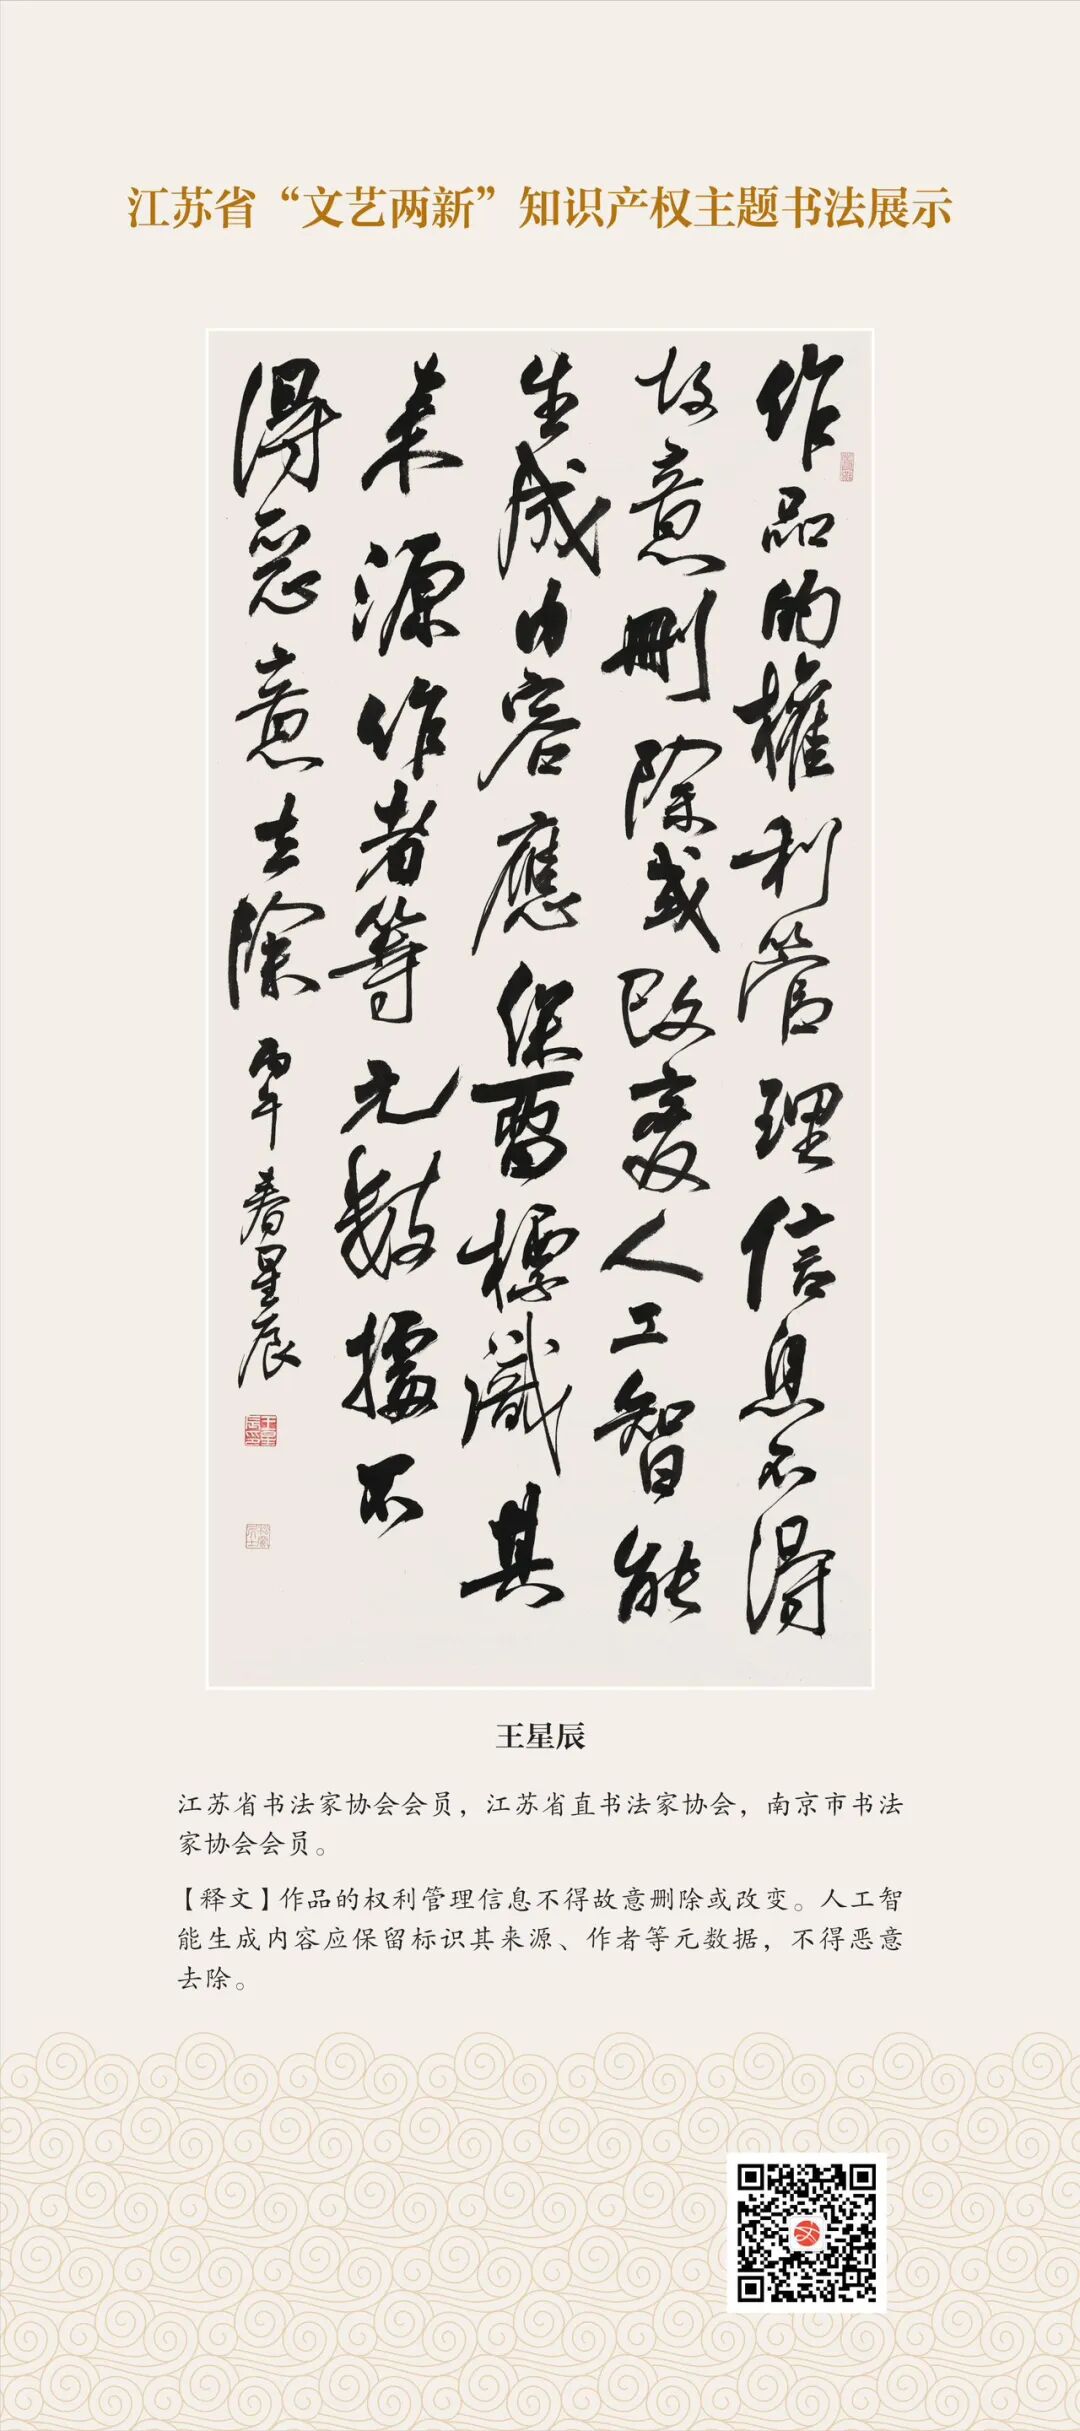 江苏省“文艺两新”知识产权主题书法展示
作品的權利管理信息不得
故意刪除或改变人工智能
生成内容應保留標識其
来源作者等元数據不
得惡意去除 丙午春星辰
王星辰
江苏省书法家协会会员，江苏省直书法家协会，南京市书法
家协会会员。
【释文】作品的权利管理信息不得故意删除或改变。人工智
能生成内容应保留标识其来源、作者等元数据，不得恶意
去除。